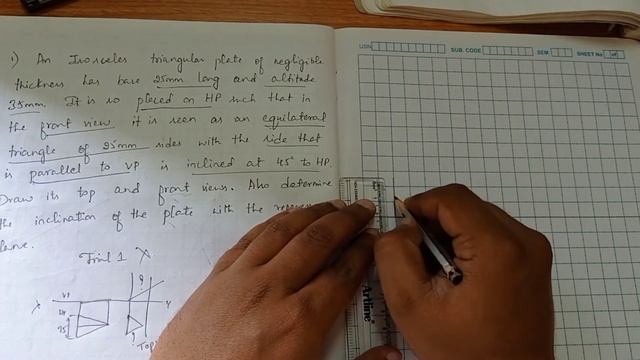 1) An Isosceles triangular plate of negligible
thickness has base 25mm long and altitude
35mm. It is so placed on HP such that in
the front view it is seen as an equilateral
triangle of 25mm sides with the side that
is parallel to VP is inclined at 45° to HP.
Draw its top and front views. Also determine
the inclination of the plate with the
plane.
Trial 1
X Y
25
Top
USN
SUB. CODE
SEM
SHEET No of
Artline